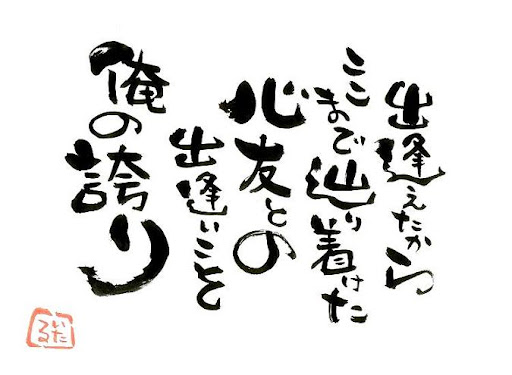 出逢えたから
ここまで辿り着けた
心友との
出逢いこそ
俺の誇り
いたる